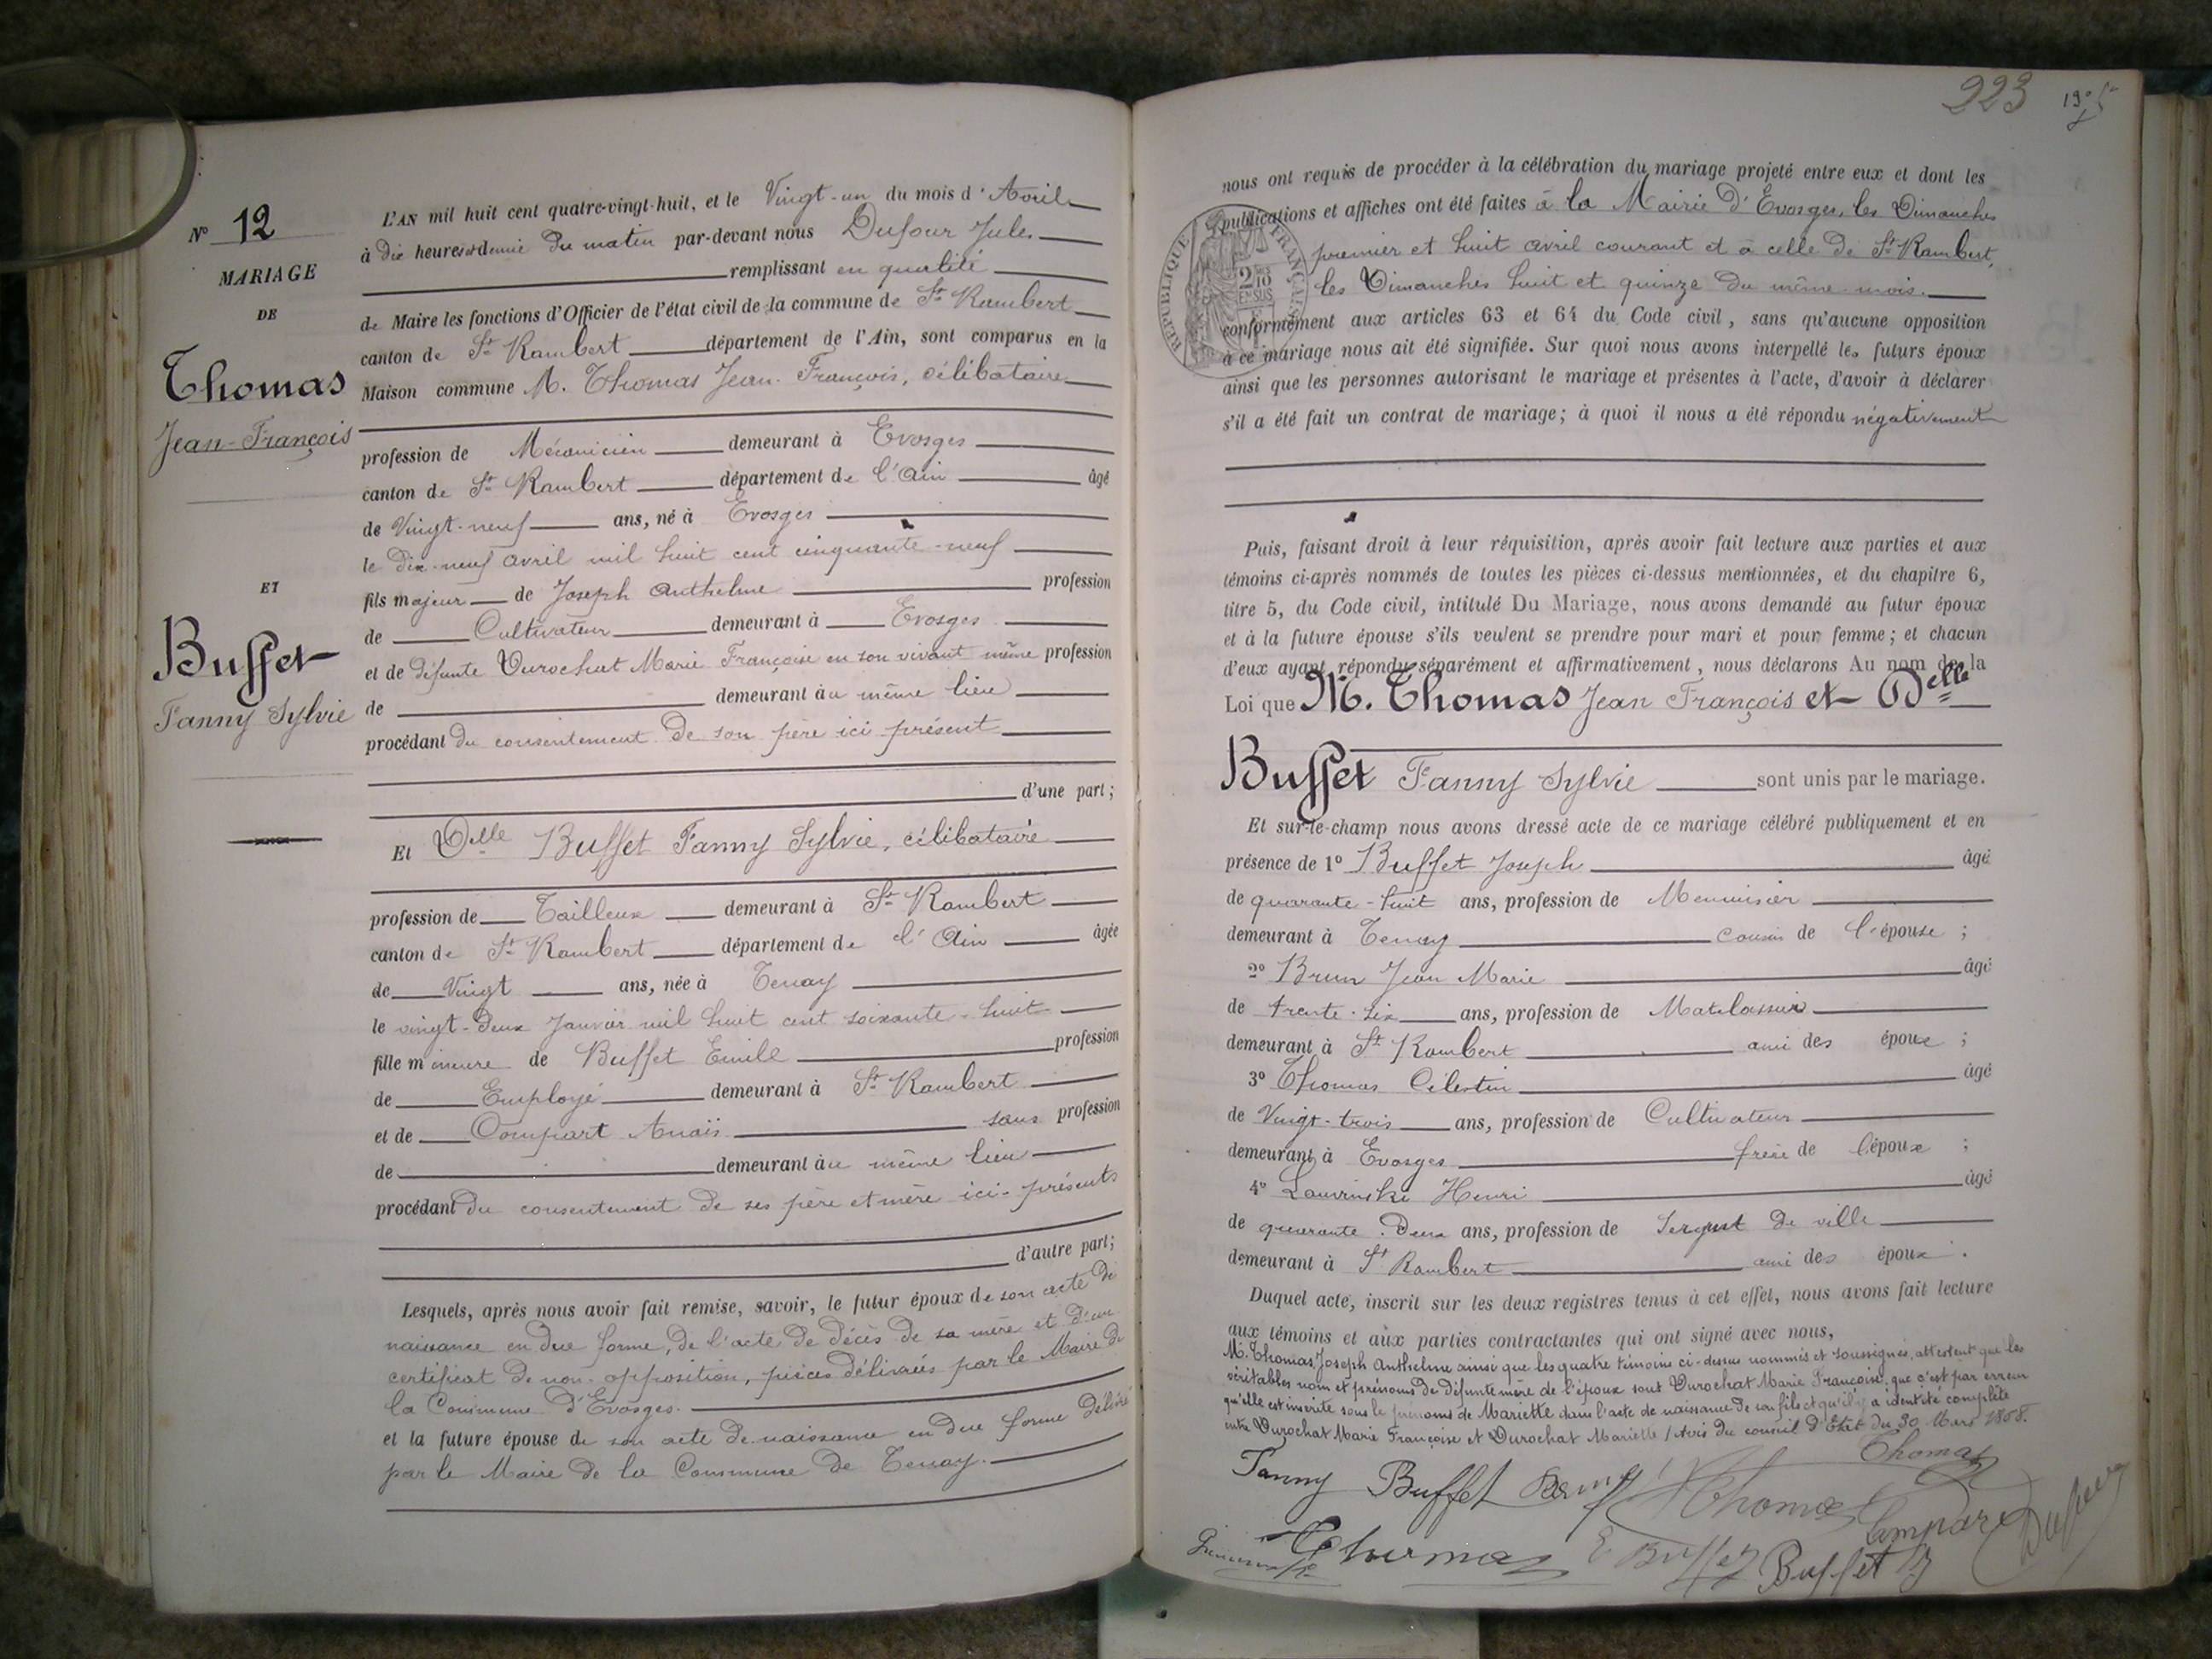 N° 12
MARIAGE
DE
Thomas
Jean-François
ET
Buffet
Fanny Sylvie
L'AN mil huit cent quatre-vingt-huit, et le Vingt-un du mois d'Avril
à dix heures et demie du matin par-devant nous Dufour Jules
remplissant en qualité
de Maire les fonctions d'Officier de l'état civil de la commune de St Rambert
canton de St Rambert département de l'Ain, sont comparus en la
Maison commune M. Thomas Jean-François, célibataire
profession de Mécanicien demeurant à Evosges
canton de St Rambert département de l'Ain âgé
de Vingt-neuf ans, né à Evosges
le dix-neuf avril mil huit cent cinquante-neuf
fils majeur de Joseph Anthelme profession
de Cultivateur demeurant à Evosges
et de défunte Durochat Marie Françoise en son vivant même profession
de demeurant au même lieu
procédant du consentement de son père ici présent
d'une part;
Et Delle Buffet Fanny Sylvie, célibataire
profession de Tailleuse demeurant à St Rambert
canton de St Rambert département de l'Ain âgée
de Vingt ans, née à Tenay
le vingt-deux Janvier mil huit cent soixante-huit
fille mineure de Buffet Emile profession
de Employé demeurant à St Rambert
et de Compart Anais sans profession
de demeurant au même lieu
procédant du consentement de ses père et mère ici-présents
d'autre part;
Lesquels, après nous avoir fait remise, savoir, le futur époux de son acte de
naissance en due forme, de l'acte de décès de sa mère et d'un
certificat de non-opposition, pièces délivrées par le Maire de
la Commune d'Evosges.
et la future épouse de son acte de naissance en due forme délivré
par le Maire de la Commune de Tenay.
223
nous ont requis de procéder à la célébration du mariage projeté entre eux et dont les
publications et affiches ont été faites à la Mairie d'Evosges, les Dimanches
premier et huit avril courant et à celle de St Rambert,
les Dimanches huit et quinze du même mois.
conformément aux articles 63 et 64 du Code civil, sans qu'aucune opposition
à ce mariage nous ait été signifiée. Sur quoi nous avons interpellé les futurs époux
ainsi que les personnes autorisant le mariage et présentes à l'acte, d'avoir à déclarer
s'il a été fait un contrat de mariage; à quoi il nous a été répondu négativement
RÉPUBLIQUE FRANÇAISE
2/10 EN SUS
Puis, faisant droit à leur réquisition, après avoir fait lecture aux parties et aux
témoins ci-après nommés de toutes les pièces ci-dessus mentionnées, et du chapitre 6,
titre 5, du Code civil, intitulé Du Mariage, nous avons demandé au futur époux
et à la future épouse s'ils veulent se prendre pour mari et pour femme; et chacun
d'eux ayant répondu séparément et affirmativement, nous déclarons Au nom de la
Loi que M. Thomas Jean François et Delle
Buffet Fanny Sylvie sont unis par le mariage.
Et sur-le-champ nous avons dressé acte de ce mariage célébré publiquement et en
présence de 1° Buffet Joseph âgé
de quarante-huit ans, profession de Menuisier
demeurant à Tenay cousin de l'épouse;
2° Brun Jean Marie âgé
de trente-six ans, profession de Matelassier
demeurant à St Rambert ami des époux;
3° Thomas Célestin âgé
de Vingt-trois ans, profession de Cultivateur
demeurant à Evosges frère de l'époux;
4° Henri âgé
de quarante-deux ans, profession de Sergent de ville
demeurant à St Rambert ami des époux.
Duquel acte, inscrit sur les deux registres tenus à cet effet, nous avons fait lecture
aux témoins et aux parties contractantes qui ont signé avec nous,
M. Thomas Joseph Anthelme ainsi que les quatre témoins ci-dessus nommés et soussignés, attestent que les
véritables nom et prénoms de défunte mère de l'époux sont Durochat Marie Françoise; que c'est par erreur
qu'elle est inscrite sous le prénoms de Mariette dans l'acte de naissance de son fils et qu'il y a identité complète
entre Durochat Marie Françoise et Durochat Mariette / Avis du conseil d'Etat du 30 Mars 1808.
Thomas
Fanny Buffet Thomas Compare
Thomas E Buffet Buffet J Dufour